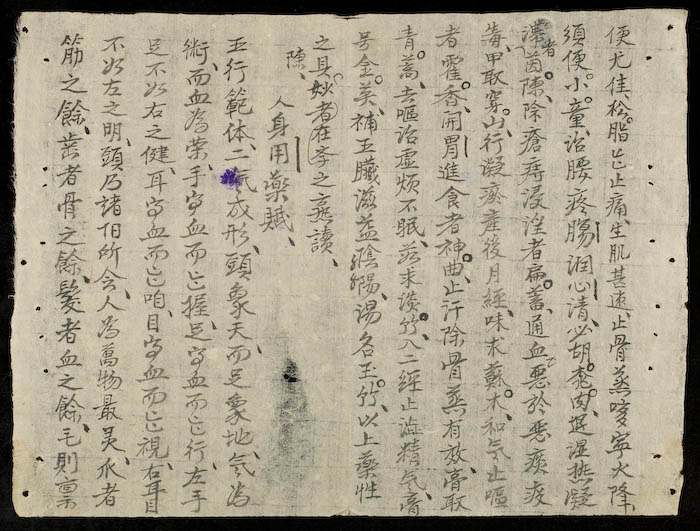 便尤佳松脂芷止痛生肌甚速止骨蒸咳寧火降
須便小童治腰疼腸润心清必胡桃肉退湿热凝
滞者茵陳除瘡痔浸淫者扁蓄通血悪於悪痰疲
毒甲取穿山行凝瘀産後月經味求蘇木和气止嘔
者霍香開胃進食者神曲止汗除骨蒸有放膏取
青蒿去嘔治虚烦不眠茲求淡竹入二經止澁精气膏
号金英補五臟滋益陰陽湯名玉竹以上薬性
之具妙者在李之熹讀
陳
人身用薬賦
五行範体二气成形頭象天而足象地气為
術而血為荣手守血而亡握足守血而亡行左手
足不如右之健耳守血而亡咱目守血而亡視右耳目
不如左之明頭乃諸陌所会人為萬物最灵爪者
筋之餘歯者骨之餘髪者血之餘毛則禀